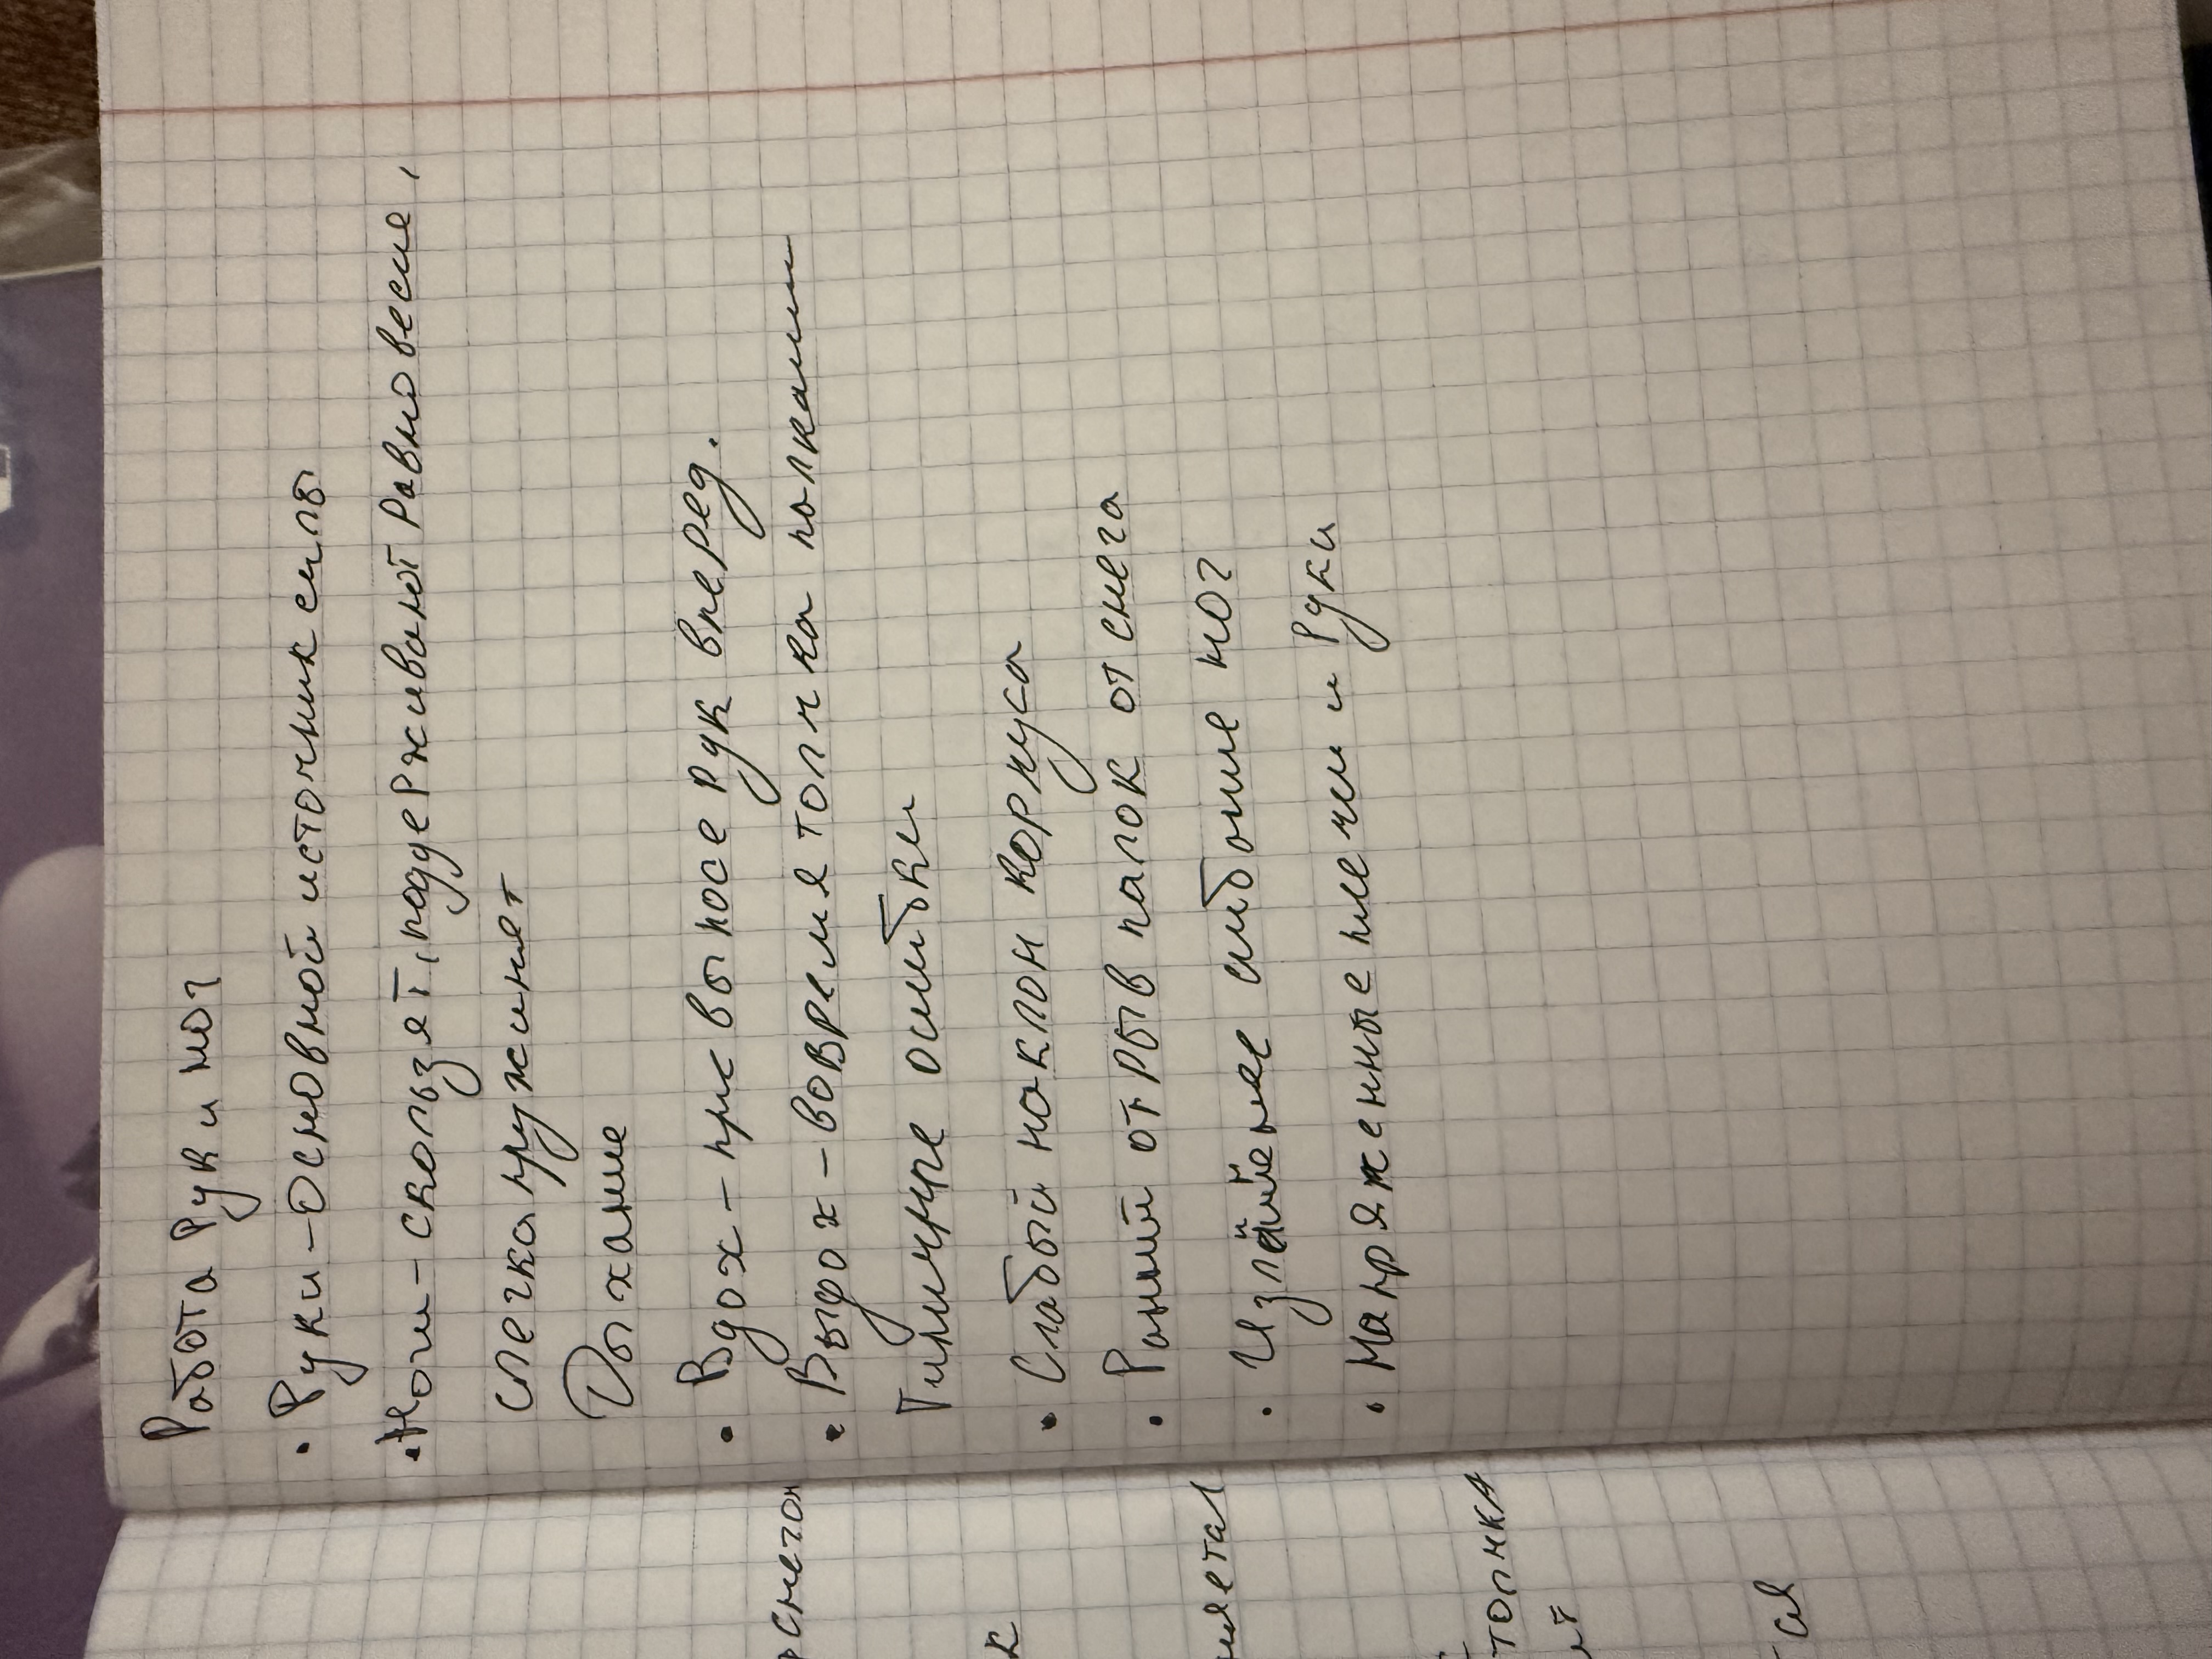 Работа Рук и ног
• Руки - Основной источник силы
• Ноги - скользят, поддерживают Равновесие,
слегка пружинят
Дыхание
• Вдох - при выносе рук вперед.
• Выдох - вовремя толчка палками
Типичные ошибки
• Слабый наклон корпуса
• Ранний отРыв палок от снега
• Излишнее сгибание ног
• Напряженные плечи и Руки
снегом
к
толчка
ся